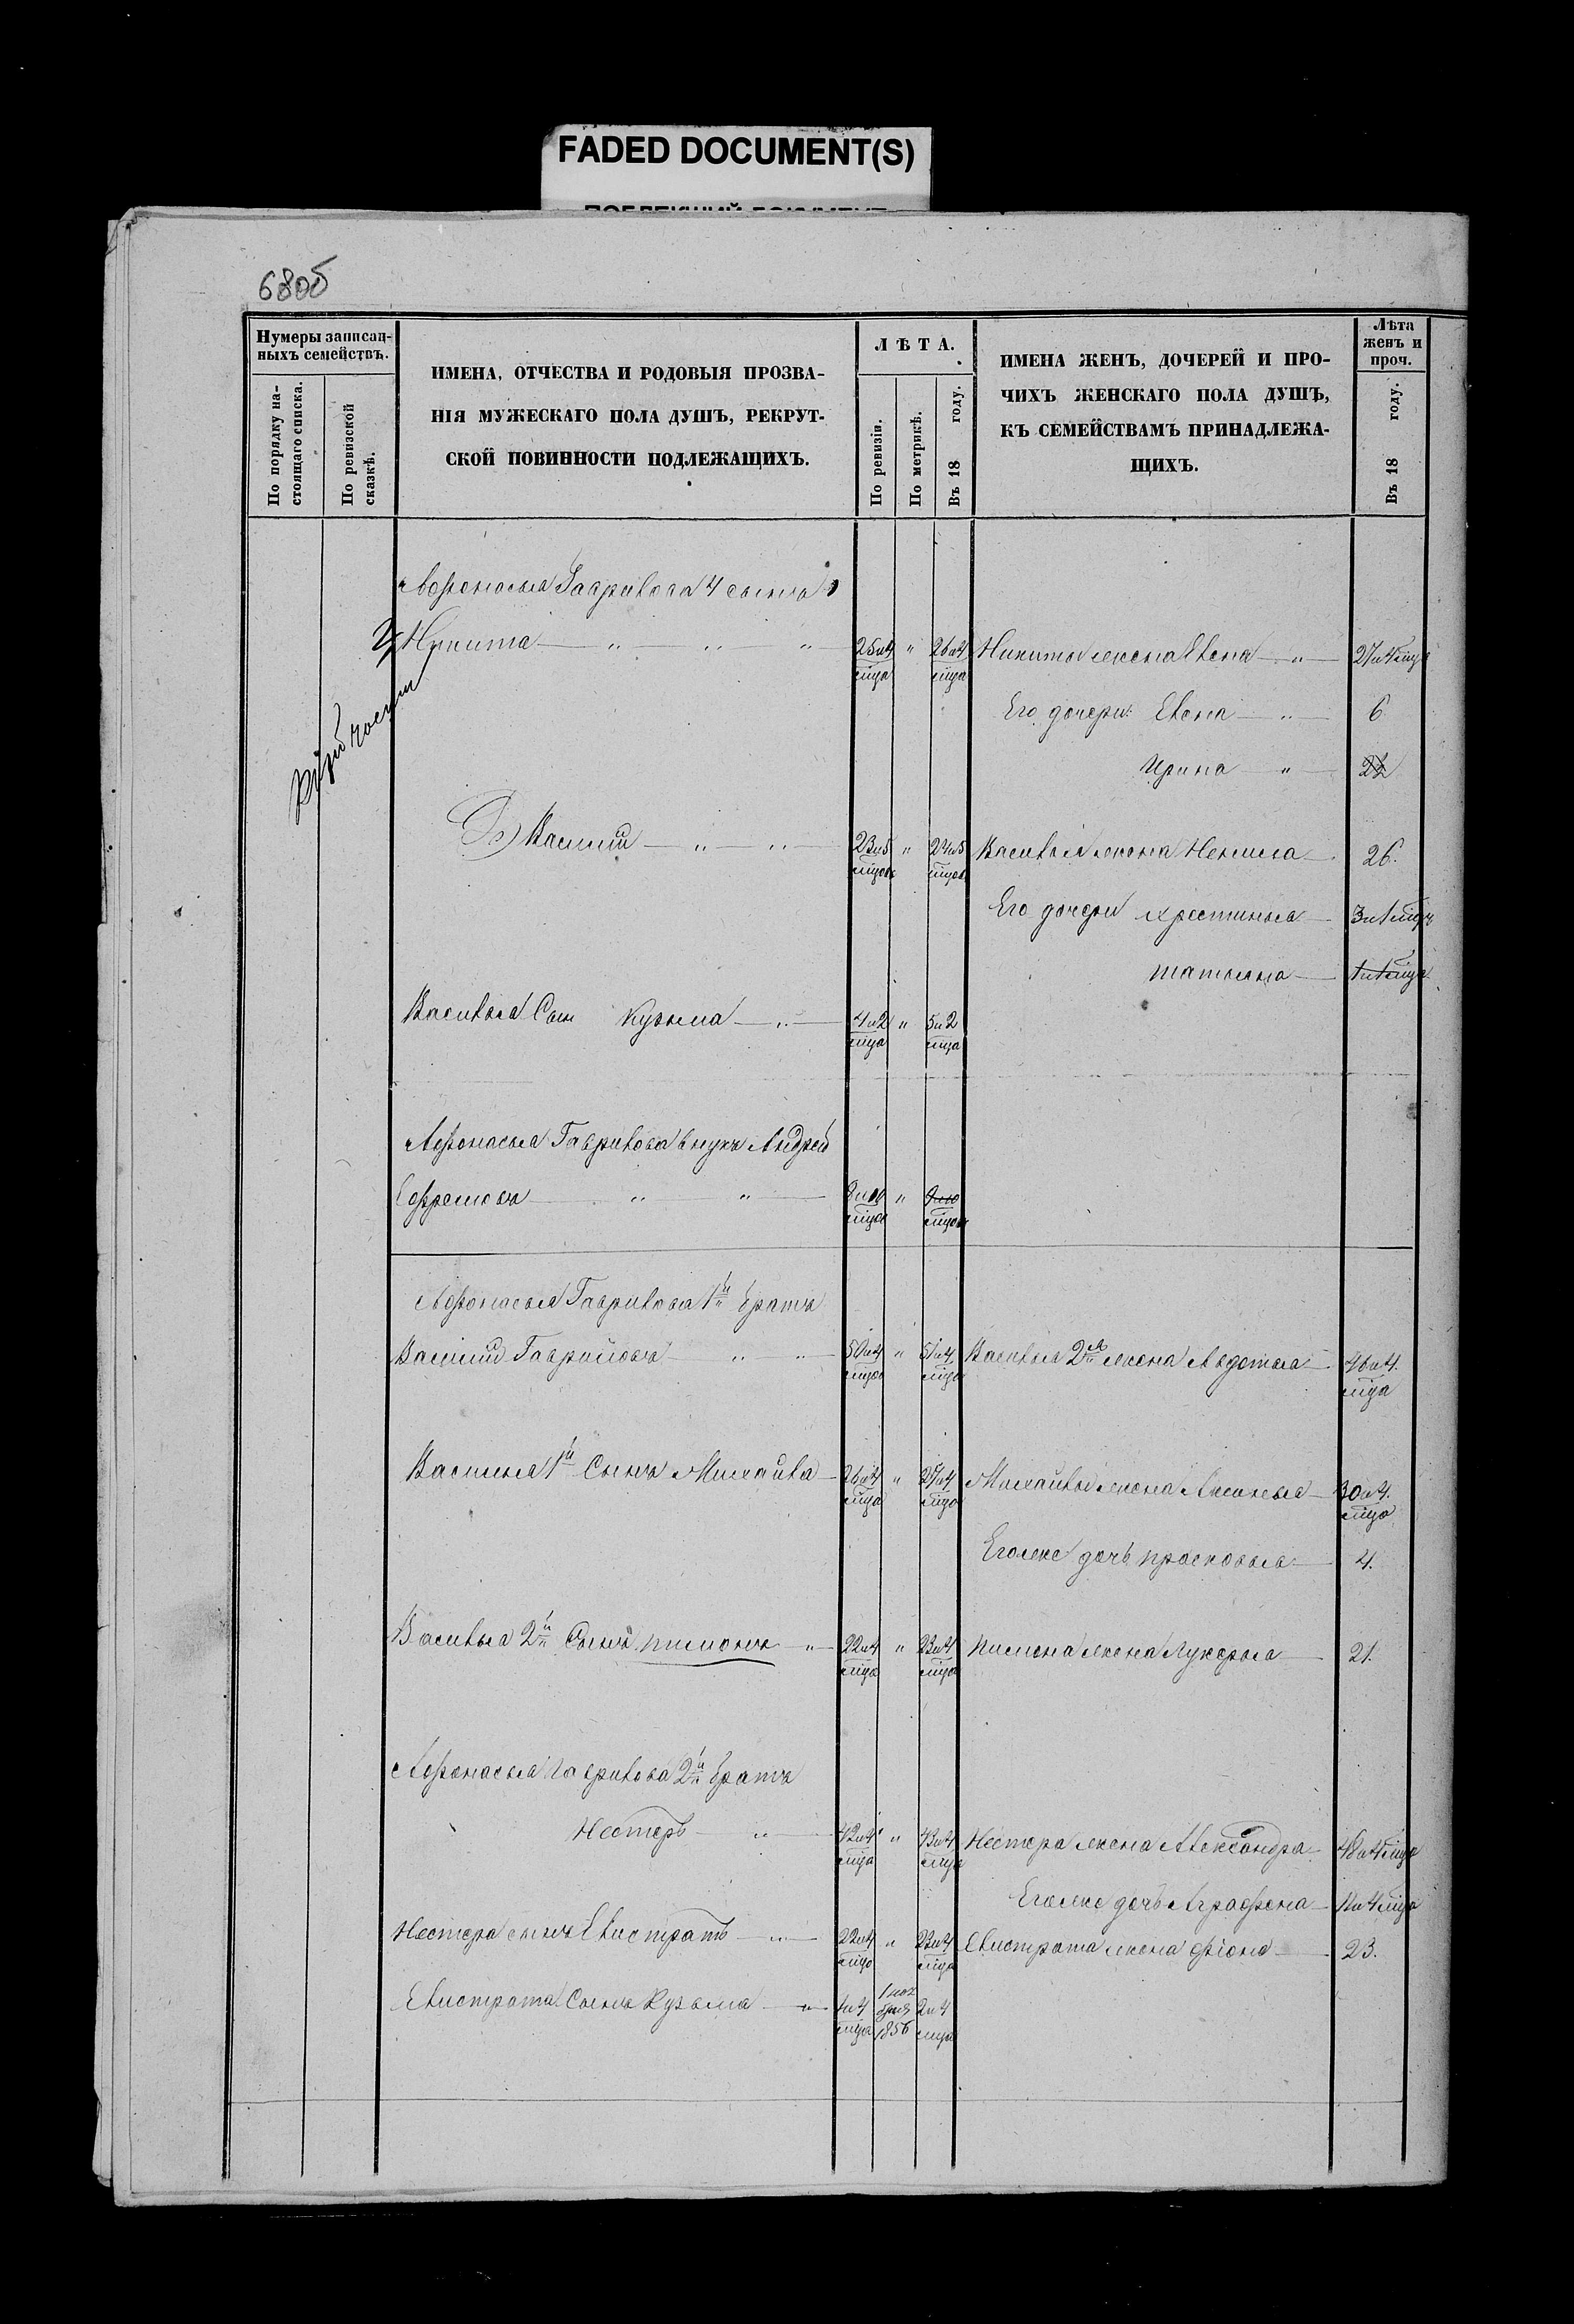 FADED DOCUMENT(S)
680б
Нумеры записан-
ныхъ семействъ.
По порядку на-
стоящаго списка.
По ревизской
сказкѣ.
ИМЕНА, ОТЧЕСТВА И РОДОВЫЯ ПРОЗВА-
НІЯ МУЖЕСКАГО ПОЛА ДУШЪ, РЕКРУТ-
СКОЙ ПОВИННОСТИ ПОДЛЕЖАЩИХЪ.
ЛѢТА.
По ревизіи.
По метрикѣ.
Въ 18 году.
ИМЕНА ЖЕНЪ, ДОЧЕРЕЙ И ПРО-
ЧИХЪ ЖЕНСКАГО ПОЛА ДУШЪ,
КЪ СЕМЕЙСТВАМЪ ПРИНАДЛЕЖА-
ЩИХЪ.
Лѣта
женъ и
проч.
Въ 18 году.
Афонасья Гаврилова 4 сына
Никита — " — " — " 25 и 4 мца " 26 и 4 мца Никиты жена Елена — " — 27 и 4 мца
Его дочери: Елена — " — 6
Ирина — " —
Василій — " — " 23 и 5 мцов " 24 и 5 мцов Василья жена Ненила — 26.
Его дочери Христинья — 3 и 1 мцъ
татьяна — 1 и 1 мца
Василья Сын Кузьма — " — 4 и 2 мца " 5 и 2 мца
Афонасья Гаврилова внукъ Андрей
Ефремовъ — " " — 8 и 10 мцов " 9 и 10 мцов
Афонасья Гаврилова 1й братъ
Василий Гавриловъ — " " — 50 и 4 мца " 51 и 4 мца Василья 2я жена Авдотья — 46 и 4 мца
Василья 1й Сынъ Михайла — 26 и 4 мца " 27 и 4 мца Михайлы жена Аксинья — 30 и 4. мца
Его же дочь прасковья — 4.
Василья 2й Сынъ пимонъ — " — 22 и 4 мца " 23 и 4 мца пимона жена Лукерья — 21.
Афонасья Гаврилова 2й братъ
Нестеръ — " — 42 и 4 мца " 43 и 4 мца Нестера жена Александра — 48 и 4 мца
Его же дочь Аграфена — 11 и 4 мца
Нестера сынъ Елистратъ — " — 22 и 4 мца " 23 и 4 мца Елистрата жена фіона — 23.
Елистрата Сынъ Кузьма — " — 1 и 4 мца 1 ноября 1856 2 и 4 мца